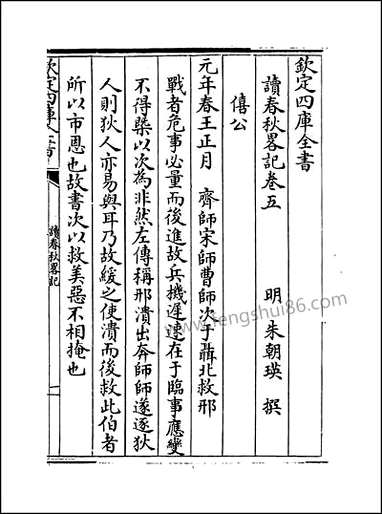 欽定四庫全書
讀春秋畧記卷五
明 朱朝瑛 撰
僖公
元年春王正月 齊師宋師曹師次于聶北救邢
戰者危事必量而後進故兵機遲速在于臨事應變
不得槩以次為非然左傳稱邢潰出奔師師遂逐狄
人則狄人亦易與耳乃故緩之使潰而後救此伯者
所以市恩也故書次以救美惡不相掩也
欽定四庫全書
讀春秋畧記
www.fengshui86.com